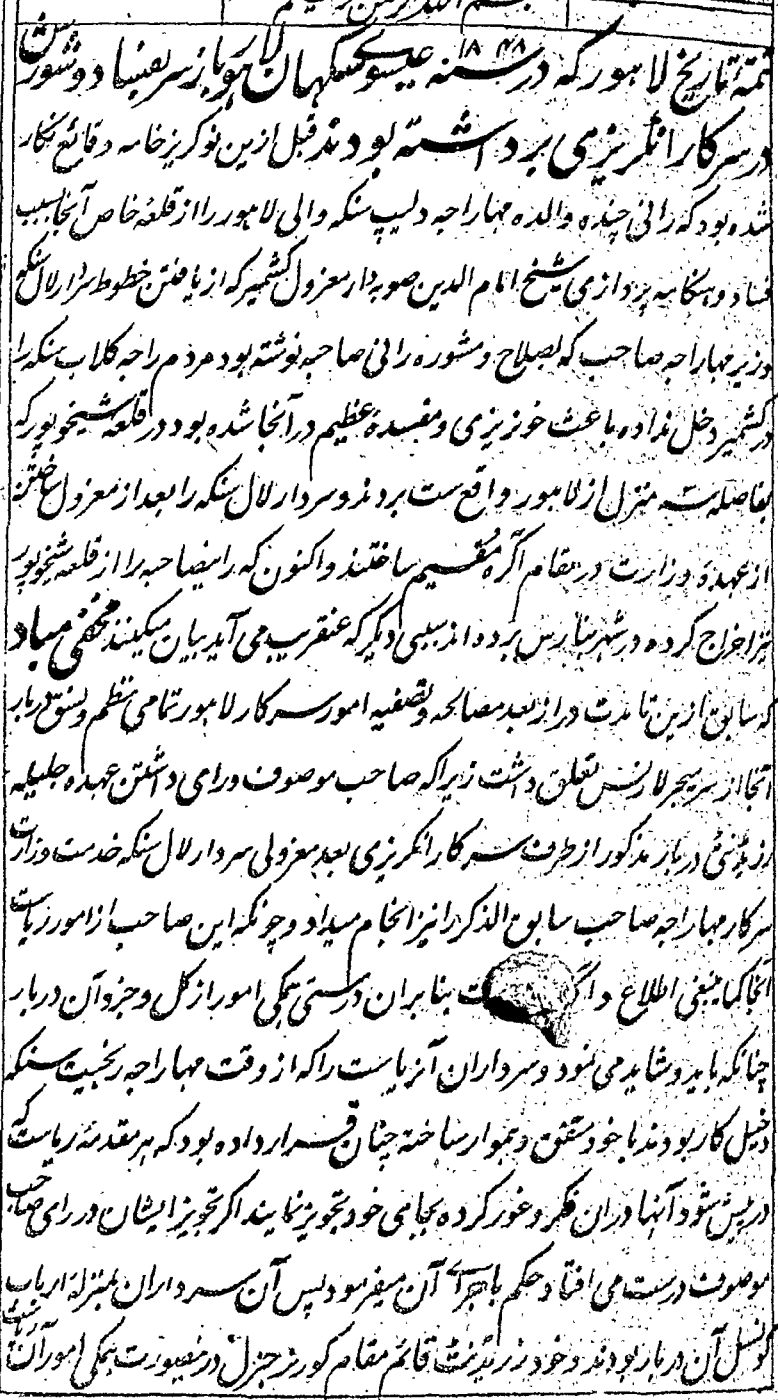 بسم الله الرحمن الرحیم
تتمهٔ تاریخ لاهور که در سنه ۱۸۴۸ عیسوی سکهان لاهور باز سر بفساد و شورش
در سرکار انگریزی برداشته بودند قبل ازین نوکریز خامه وقائع نکار
شده بود که رانی چنده والده مهاراجه دلیپ سنکه والی لاهور را از قلعهٔ خاص آنجا بسبب
فساد و هنکامه پردازی شیخ امام الدین صوبه دار معزول کشمیر که از یافتن خطوط سردار لال سنکه
وزیر مهاراجه صاحب که بصلاح و مشوره رانی صاحبه نوشته بود مردم راجه کلاب سنکه را
در کشمیر دخل نداده باعث خونریزی و مفسدهٔ عظیم در آنجا شده بود در قلعه شیخوپور که
بفاصله سه منزل از لاهور واقع ست بردند و سردار لال سنکه را بعد از معزول ساختن
از عهدهٔ وزارت در مقام آگره مقیم ساختند و اکنون که رانیصاحبه را از قلعه شیخوپور
نیز اخراج کرده در شهر بنارس برده اند سببی دیگر که عنقریب می آید بیان میکنند مخفی مباد
که سابق ازین تا مدت دراز بعد مصالحه و تصفیه امور سرکار لاهور تمامی نظم و نسق دربار
آنجا از سر میجر لارنس تعلق داشت زیرا که صاحب موصوف ورای داشتن عهده جلیله
رزیدنتی دربار مذکور از طرف سرکار انگریزی بعد معزولی سردار لال سنکه خدمت وزارت
سرکار مهاراجه صاحب سابق الذکر را نیز انجام میداد و چونکه این صاحب از امور ریاست
آنجا کماینبغی اطلاع و بنابران درستی همکی امور از کل و جزو آن دربار
چنانکه باید و شاید می نمود و سرداران آن ریاست را که از وقت مهاراجه رنجیت سنکه
دخیل کار بودند با خود متفق و هموار ساخته چنان قرار داده بود که هر مقدمهٔ ریاست که
در پیش شود آنها در آن فکر و غور کرده بجای خود تجویز نمایند اگر تجویز ایشان در رای صاحب
موصوف درست می افتاد حکم باجرای آن میفرمود پس آن سرداران بمنزله ارباب
کونسل آن دربار بودند و خود رزیدنت قائم مقام کورنر جنرل درینصورت همکی امور آن ریاست